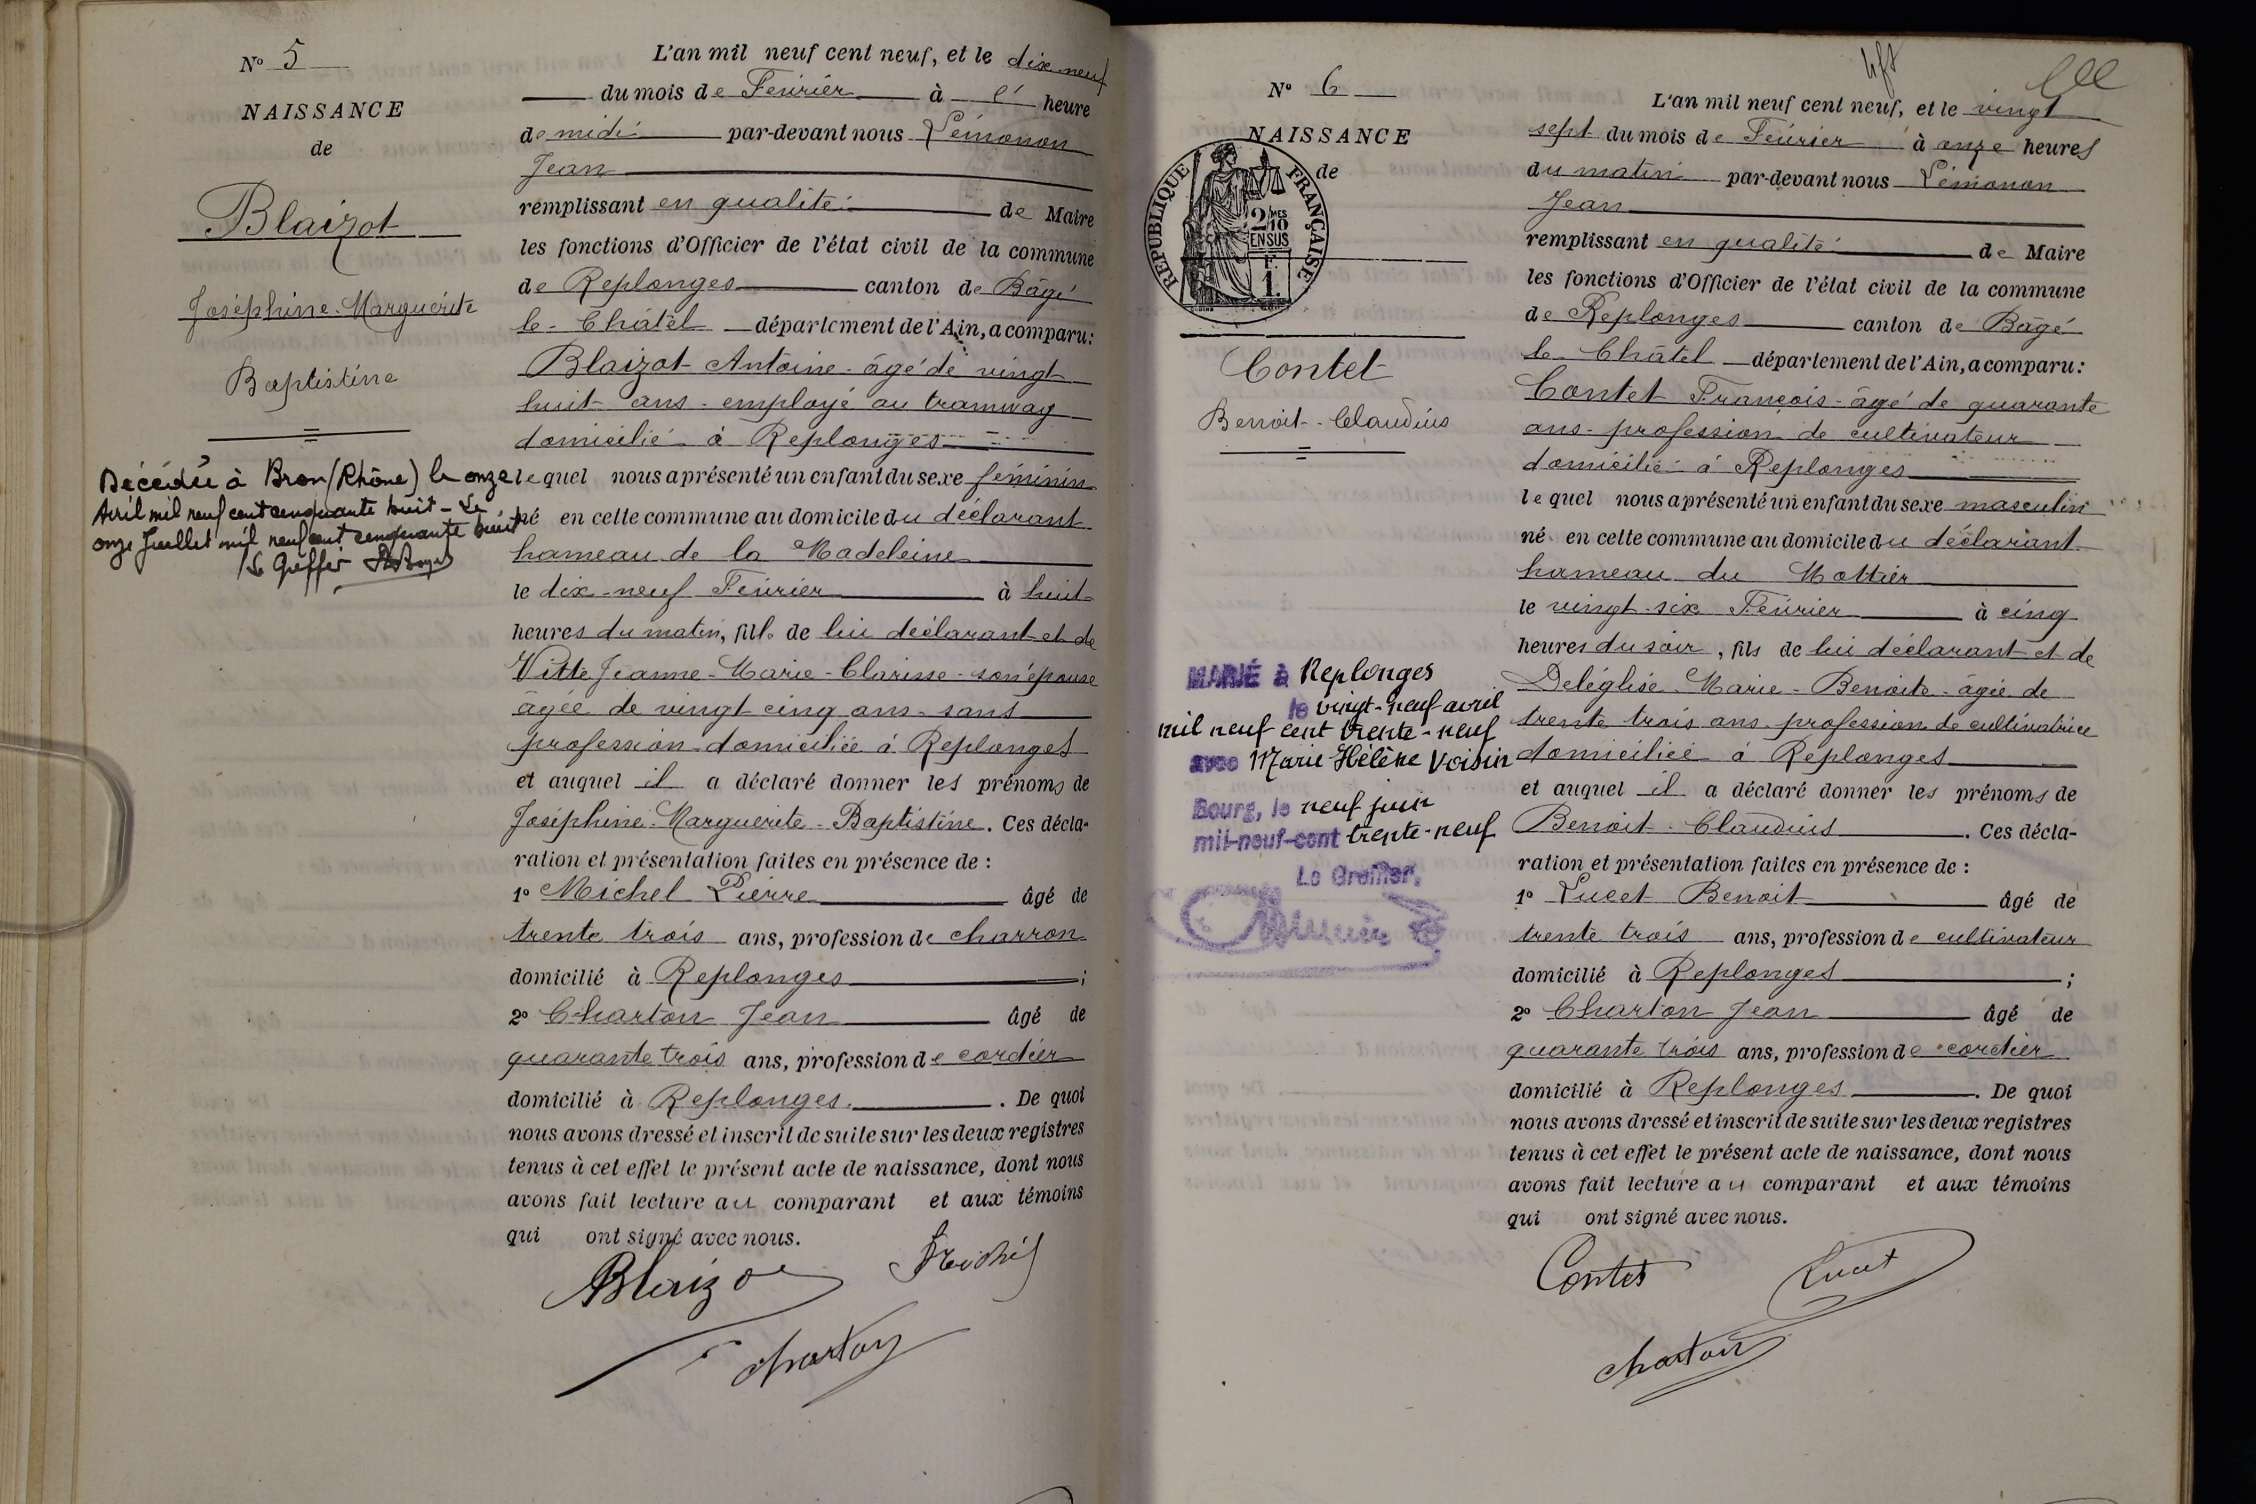 N° 5
NAISSANCE
de
Blaizot
Joséphine-Marguerite
Baptistine
Décédée à Bron (Rhône) le onze
Avril mil neuf cent cinquante huit - Le
onze Juillet mil neuf cent cinquante huit
Le Greffier
L'an mil neuf cent neuf, et le dix neuf
du mois de Février à l' heure
de midi par-devant nous Lémonon
Jean
remplissant en qualité de Maire
les fonctions d'Officier de l'état civil de la commune
de Replonges canton de Bâgé
le-Châtel département de l'Ain, a comparu:
Blaizot Antoine âgé de vingt
huit ans - employé au tramway
domicilié à Replonges
lequel nous a présenté un enfant du sexe féminin
né en cette commune au domicile du déclarant
hameau de la Madeleine
le dix-neuf Février à huit
heures du matin, fille de lui déclarant et de
Vitte Jeanne-Marie-Clarisse-son épouse
âgée de vingt cinq ans - sans
profession domiciliée à Replonges
et auquel il a déclaré donner les prénoms de
Joséphine-Marguerite-Baptistine. Ces décla-
ration et présentation faites en présence de :
1° Michel Pierre âgé de
trente trois ans, profession de charron
domicilié à Replonges ;
2° Charton Jean âgé de
quarante trois ans, profession de cordier
domicilié à Replonges. De quoi
nous avons dressé et inscrit de suite sur les deux registres
tenus à cet effet le présent acte de naissance, dont nous
avons fait lecture au comparant et aux témoins
qui ont signé avec nous.
ABlaizot
Michel
Charton
N° 6
NAISSANCE
de
RÉPUBLIQUE FRANÇAISE
2/10 MES
EN SUS
F.
1.
Contet
Benoit-Claudius
MARIÉ à Replonges
le vingt-neuf avril
mil neuf cent trente-neuf
avec Marie Hélène Voisin
Bourg, le neuf juin
mil-neuf-cent trente-neuf
Le Greffier,
L'an mil neuf cent neuf, et le vingt
sept du mois de Février à onze heures
du matin par-devant nous Lémonon
Jean
remplissant en qualité de Maire
les fonctions d'Officier de l'état civil de la commune
de Replonges canton de Bâgé
le-Châtel département de l'Ain, a comparu:
Contet François-âgé de quarante
ans-profession de cultivateur
domicilié à Replonges
lequel nous a présenté un enfant du sexe masculin
né en cette commune au domicile du déclarant
hameau du Mottier
le vingt-six Février à cinq
heures du soir, fils de lui déclarant et de
Deléglise Marie-Benoite-âgée de
trente trois ans profession de cultivatrice
domiciliée à Replonges
et auquel il a déclaré donner les prénoms de
Benoit-Claudius. Ces décla-
ration et présentation faites en présence de :
1° Lucet Benoit âgé de
trente trois ans, profession de cultivateur
domicilié à Replonges ;
2° Charton Jean âgé de
quarante trois ans, profession de cordier
domicilié à Replonges. De quoi
nous avons dressé et inscrit de suite sur les deux registres
tenus à cet effet le présent acte de naissance, dont nous
avons fait lecture au comparant et aux témoins
qui ont signé avec nous.
Contet
Lucet
Charton